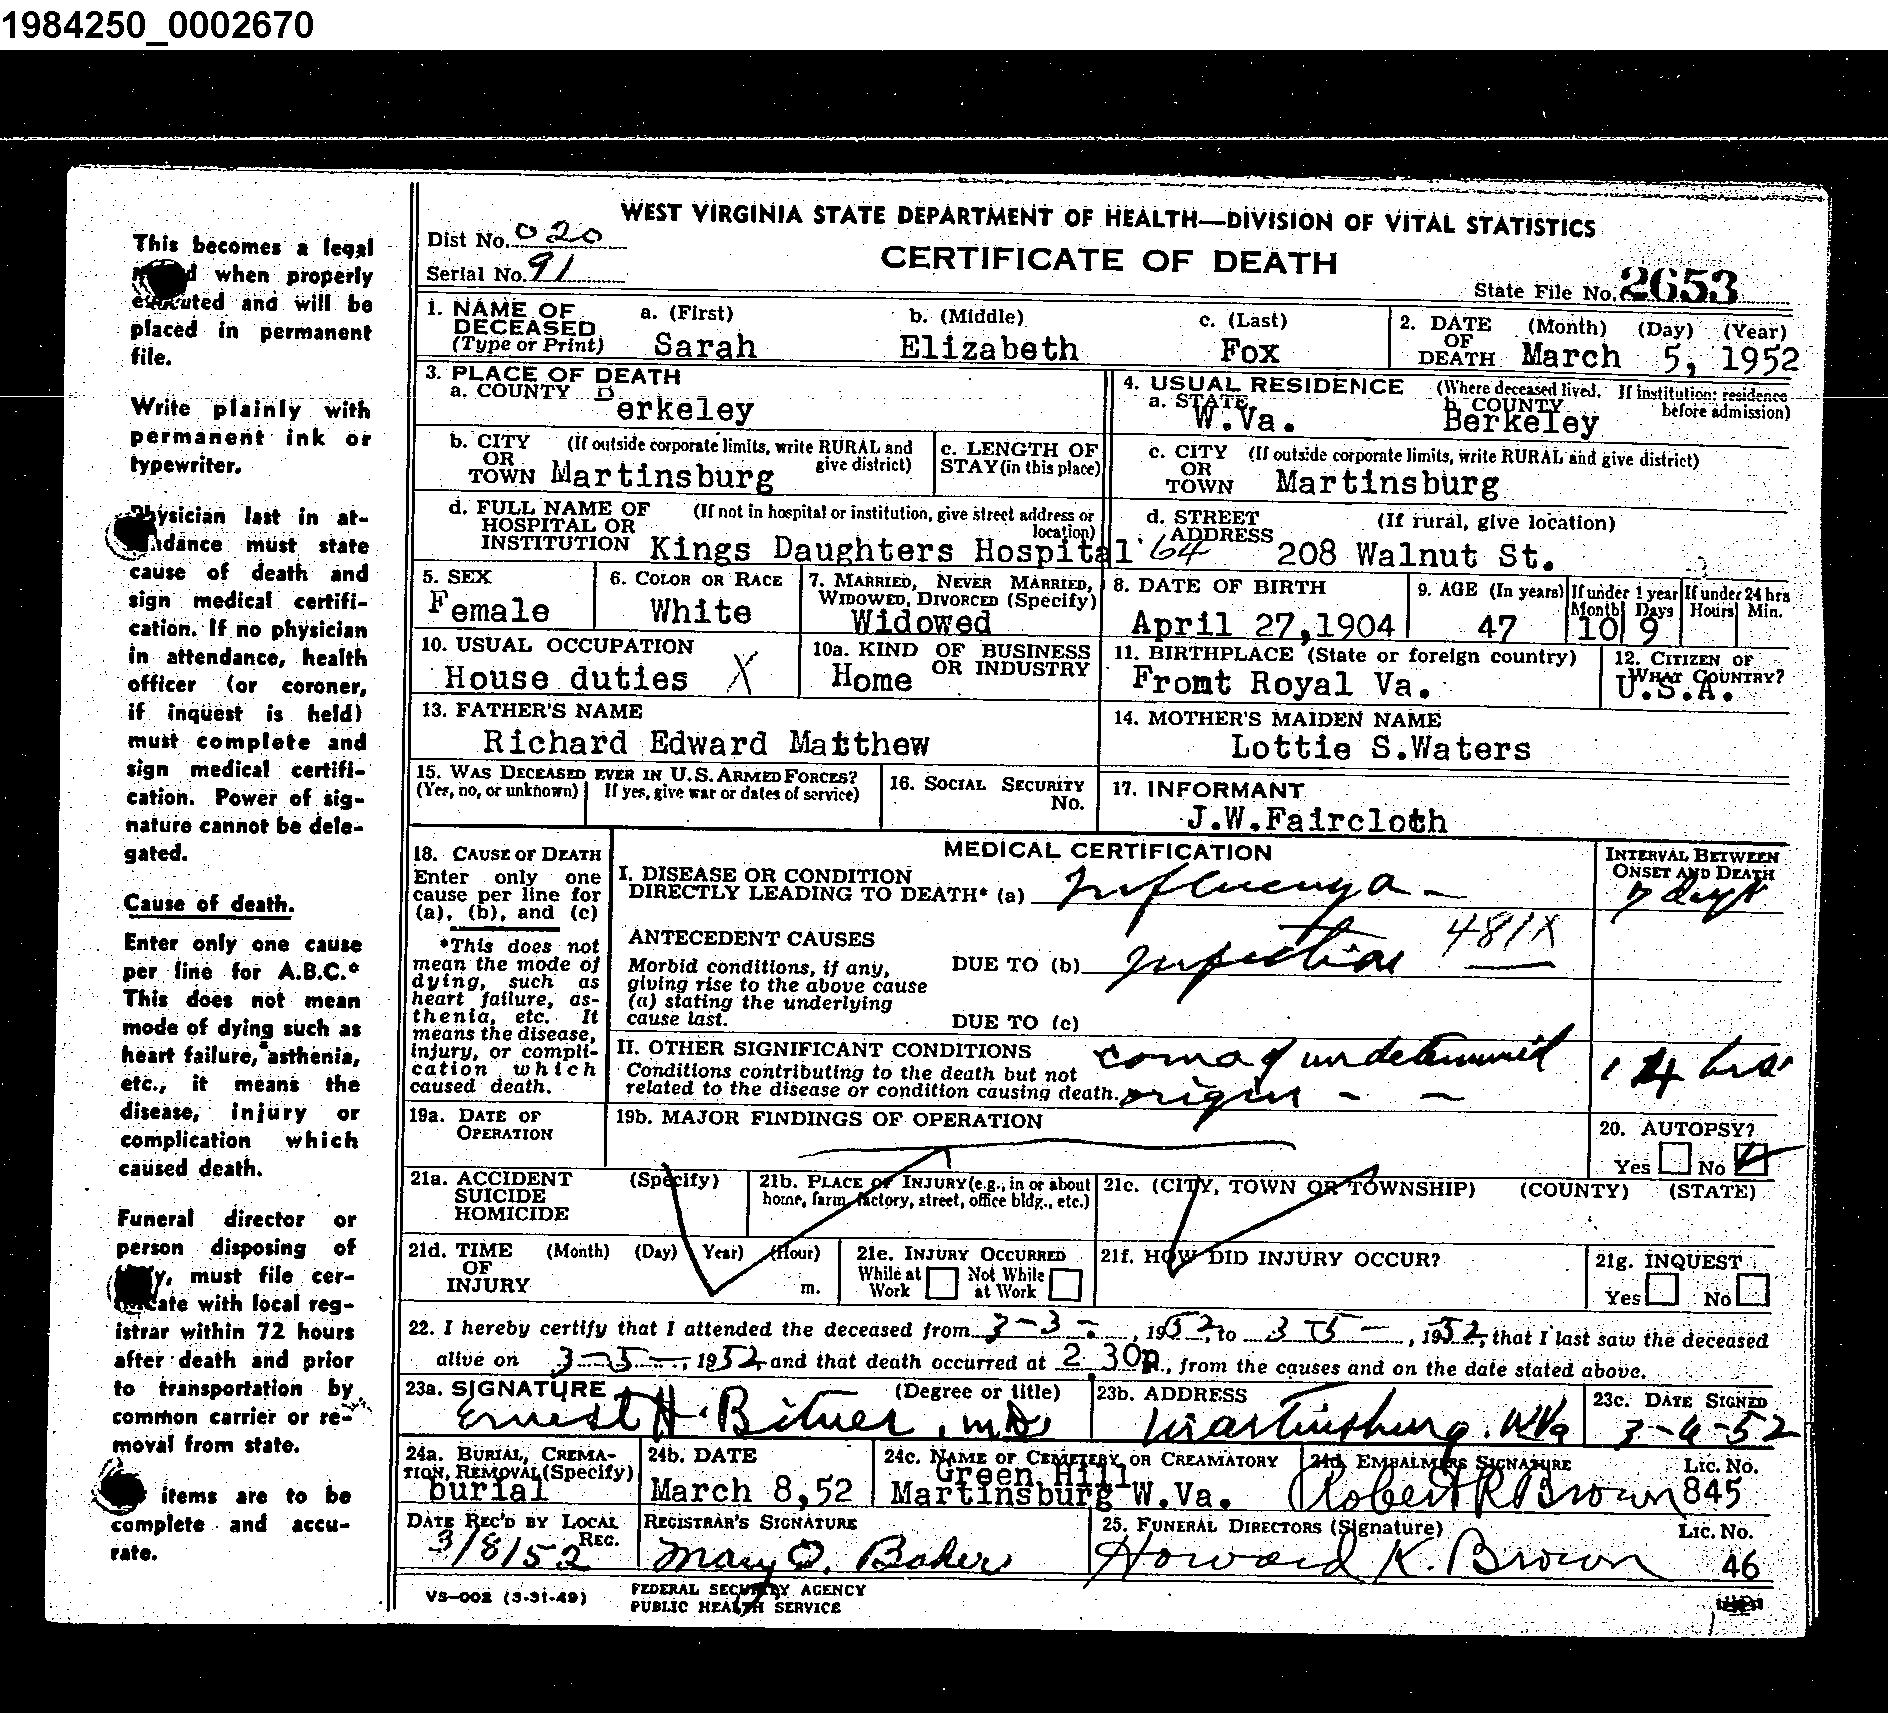 1984250_0002670
This becomes a legal
when properly
executed and will be
placed in permanent
file.
Write plainly with
permanent ink or
typewriter.
Physician last in at-
tendance must state
cause of death and
sign medical certifi-
cation. If no physician
in attendance, health
officer (or coroner,
if inquest is held)
must complete and
sign medical certifi-
cation. Power of sig-
nature cannot be dele-
gated.
Cause of death.
Enter only one cause
per line for A.B.C.*
This does not mean
mode of dying such as
heart failure, asthenia,
etc., it means the
disease, injury or
complication which
caused death.
Funeral director or
person disposing of
must file cer-
tificate with local reg-
istrar within 72 hours
after death and prior
to transportation by
common carrier or re-
moval from state.
items are to be
complete and accu-
rate.
WEST VIRGINIA STATE DEPARTMENT OF HEALTH—DIVISION OF VITAL STATISTICS
Dist No. 020
CERTIFICATE OF DEATH
Serial No. 91
State File No. 2653
1. NAME OF DECEASED (Type or Print) a. (First) b. (Middle) c. (Last)
Sarah Elizabeth Fox
2. DATE OF DEATH (Month) (Day) (Year)
March 5, 1952
3. PLACE OF DEATH
a. COUNTY Berkeley
4. USUAL RESIDENCE (Where deceased lived. If institution: residence before admission)
a. STATE W.Va. b. COUNTY Berkeley
b. CITY OR TOWN (If outside corporate limits, write RURAL and give district) Martinsburg
c. LENGTH OF STAY (in this place)
c. CITY OR TOWN (If outside corporate limits, write RURAL and give district) Martinsburg
d. FULL NAME OF HOSPITAL OR INSTITUTION (If not in hospital or institution, give street address or location) Kings Daughters Hospital 64
d. STREET ADDRESS (If rural, give location) 208 Walnut St.
5. SEX Female
6. COLOR OR RACE White
7. MARRIED, NEVER MARRIED, WIDOWED, DIVORCED (Specify) Widowed
8. DATE OF BIRTH April 27,1904
9. AGE (In years) 47
If under 1 year Months Days 10 9
If under 24 hrs Hours Min.
10. USUAL OCCUPATION House duties X
10a. KIND OF BUSINESS OR INDUSTRY Home
11. BIRTHPLACE (State or foreign country) Fromt Royal Va.
12. CITIZEN OF WHAT COUNTRY? U.S.A.
13. FATHER'S NAME
Richard Edward Matthew
14. MOTHER'S MAIDEN NAME
Lottie S.Waters
15. WAS DECEASED EVER IN U.S. ARMED FORCES?
(Yes, no, or unknown) If yes, give war or dates of service)
16. SOCIAL SECURITY No.
17. INFORMANT
J.W.Faircloth
18. CAUSE OF DEATH
Enter only one
cause per line for
(a), (b), and (c)
*This does not
mean the mode of
dying, such as
heart failure, as-
thenia, etc. It
means the disease,
injury, or compli-
cation which
caused death.
MEDICAL CERTIFICATION
INTERVAL BETWEEN ONSET AND DEATH
I. DISEASE OR CONDITION
DIRECTLY LEADING TO DEATH* (a) Influenza - 7 days
ANTECEDENT CAUSES
Morbid conditions, if any,
giving rise to the above cause
(a) stating the underlying
cause last.
DUE TO (b) Infection 481X
DUE TO (c)
II. OTHER SIGNIFICANT CONDITIONS
Conditions contributing to the death but not
related to the disease or condition causing death.
coma of undetermined
origin - - 24 hrs.
19a. DATE OF OPERATION
19b. MAJOR FINDINGS OF OPERATION
20. AUTOPSY?
Yes No
21a. ACCIDENT SUICIDE HOMICIDE (Specify)
21b. PLACE OF INJURY (e.g., in or about home, farm, factory, street, office bldg., etc.)
21c. (CITY, TOWN OR TOWNSHIP) (COUNTY) (STATE)
21d. TIME OF INJURY (Month) (Day) Year) (Hour) m.
21e. INJURY OCCURRED
While at Work Not While at Work
21f. HOW DID INJURY OCCUR?
21g. INQUEST
Yes No
22. I hereby certify that I attended the deceased from 3-3-, 1952, to 3-5-, 1952, that I last saw the deceased
alive on 3-5-, 1952 and that death occurred at 2 30p., from the causes and on the date stated above.
23a. SIGNATURE (Degree or title) Ernest H. Bitner, M.D.
23b. ADDRESS Martinsburg. W.Va
23c. DATE SIGNED 3-6-52
24a. BURIAL, CREMA-
TION, REMOVAL (Specify)
burial
24b. DATE
March 8,52
24c. NAME OF CEMETERY OR CREAMATORY
Green Hill
Martinsburg W.Va.
24d. EMBALMERS SIGNATURE Lic. No.
Robert R Brown 845
DATE REC'D BY LOCAL REG.
3/8/52
REGISTRAR'S SIGNATURE
Mary O. Baker
25. FUNERAL DIRECTORS (Signature) Lic. No.
Howard K. Brown 46
VS-002 (3-31-49)
FEDERAL SECURITY AGENCY
PUBLIC HEALTH SERVICE